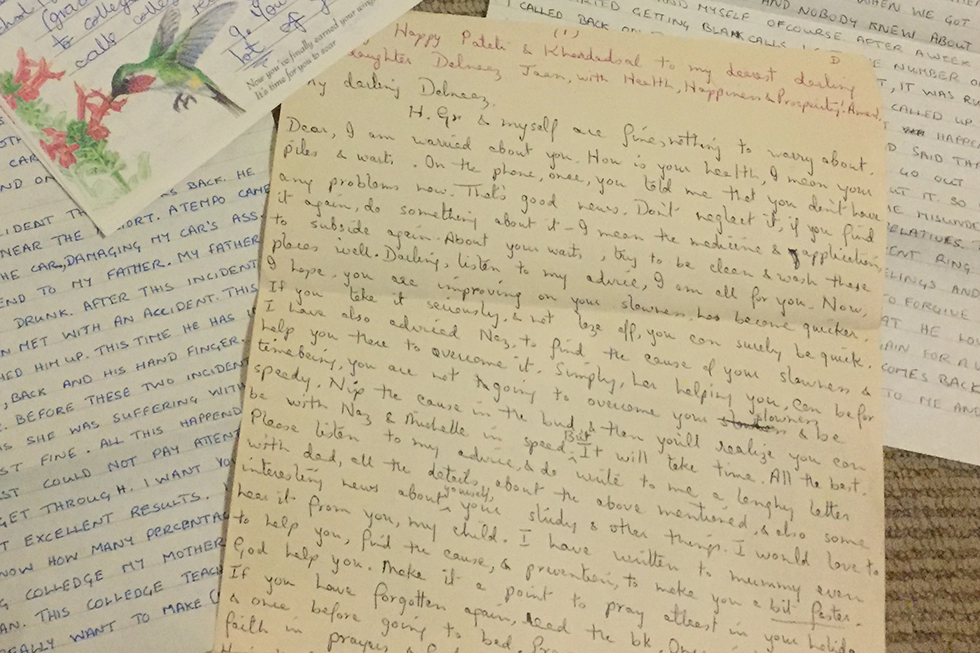 (1)
Happy Pateti & Khordadsal to my dearest darling
daughter Delnaaz Jaan, with Health, Happiness & Prosperity. Amen.
My darling Delnaaz,
H. Gr & myself are fine, nothing to worry about.
Dear, I am worried about you. How is your health, I mean your
piles & warts. On the phone, once, you told me that you don't have
any problems now. That's good news. Don't neglect it, if you find
it again, do something about it - I mean the medicine & application,
to subside again. About your warts, try to be clean & wash these
places well. Darling, listen to my advice, I am all for you. Now,
I hope, you are improving on your slowness, has become quicker.
If you take it seriously, & not laze off, you can surely be quick.
I have also adviced Naz, to find the cause of your slowness &
help you there to overcome it. Simply, her helping you, can be for
timebeing, you are not going to overcome your slowness & be
speedy. Nip the cause in the bud, & then you'll realize you can
be with Naz & Michelle in speed. But It will take time. All the best.
Please listen to my advice, & do write to me, a lengthy letter
with dad, all the details, about the above mentioned, & also some
interesting news about yourself, your study & other things. I would love to
hear it from you, my child. I have written to mummy even
to help you, find the cause, & prevention, to make you a bit faster.
God help you. Make it a point to pray atleast in your holiday
If you have forgotten again, read the bk. 
& once before going to bed.
faith in prayers &
college
to college
calls
lot of
Now you've finally earned your wings
It's time for you to soar
BACK. HE
NEAR THE
A TEMPO CAME
THE CAR, DAMAGING MY CAR'S ASS.
END TO MY FATHER. MY FATHER
DRUNK. AFTER THIS INCIDENT
MET WITH AN ACCIDENT. THIS
HED HIM UP. THIS TIME HE HAS
, BACK AND HIS HAND FINGER
. BEFORE THESE TWO INCIDENT
SHE WAS SUFFERING WITH
FINE. ALL THIS HAPPEND
COULD NOT PAY ATTENT
GET THROUGH. I WANT YOU
EXCELLENT RESULTS.
NOW HOW MANY PERCENTAG
COLLEDGE MY MOTHER
AN. THIS COLLEDGE TEAC
REALLY WANT TO MAKE
MYSELF OFCOURSE. AFTER A WEEK
WHEN WE GOT
AND NOBODY KNEW ABOUT
I CALLED BACK ON
GETTING BLANK CALLS
NUMBER
, IT WAS
CALLED UP.
HAPPE
SAID THA
GO OUT
IT. SO
MISUND
RELATIVES.
RING.
LINGS AND
TO FORGIVE
AT HE LOV
AIN FOR A
COMES BACK
TO ME AND